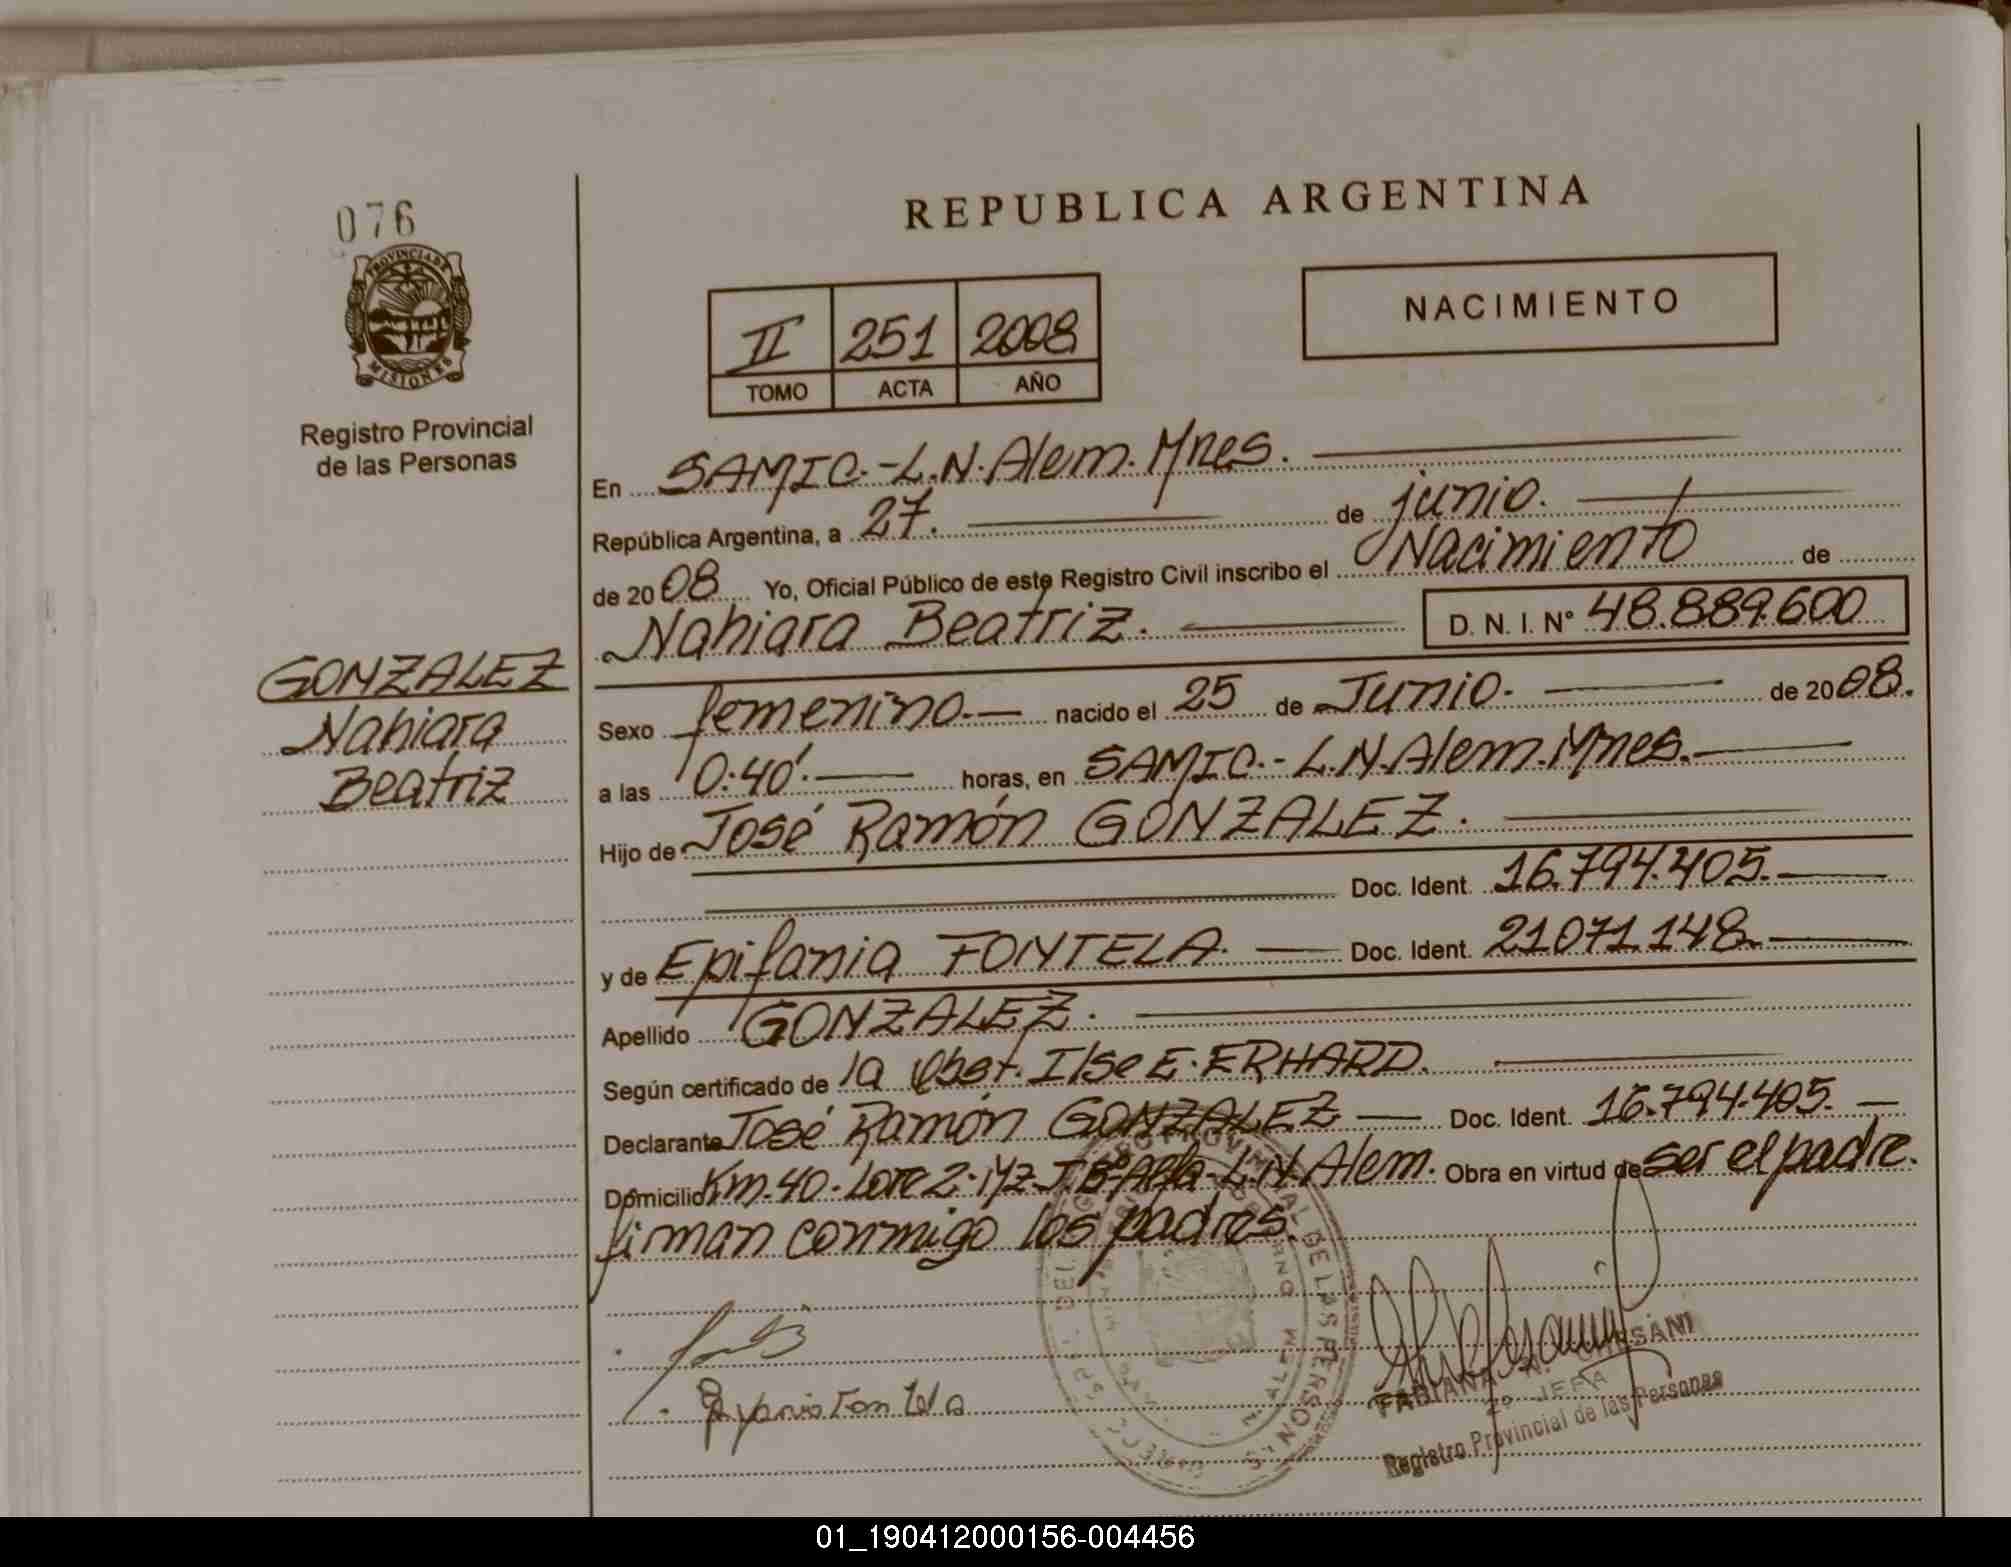 076
PROVINCIA DE
MISIONES
Registro Provincial
de las Personas
GONZALEZ
Nahiara
Beatriz
REPUBLICA ARGENTINA
NACIMIENTO
II 251 2008
TOMO ACTA AÑO
En SAMIC.-L.N.Alem.Mnes.
República Argentina, a 27. de junio.
de 2008 Yo, Oficial Público de este Registro Civil inscribo el Nacimiento de
Nahiara Beatriz. D. N. I. N° 48.889.600
Sexo femenino.- nacido el 25 de Junio. de 2008.
a las 0:40'. horas, en SAMIC.-L.N.Alem.Mnes.
Hijo de José Ramón GONZALEZ.
Doc. Ident. 16.794.405.
y de Epifania FONTELA. Doc. Ident. 21.071.148.
Apellido GONZALEZ.
Según certificado de la Obst. Ilse E. ERHARD.
Declarante José Ramón GONZALEZ Doc. Ident. 16.794.405.
Domicilio Km.40.Lote 2.Mz.J.B° L.N.Alem. Obra en virtud de ser el padre.
firman conmigo los padres.
FABIANA
2° JEFA
Registro Provincial de las Personas
01_190412000156-004456